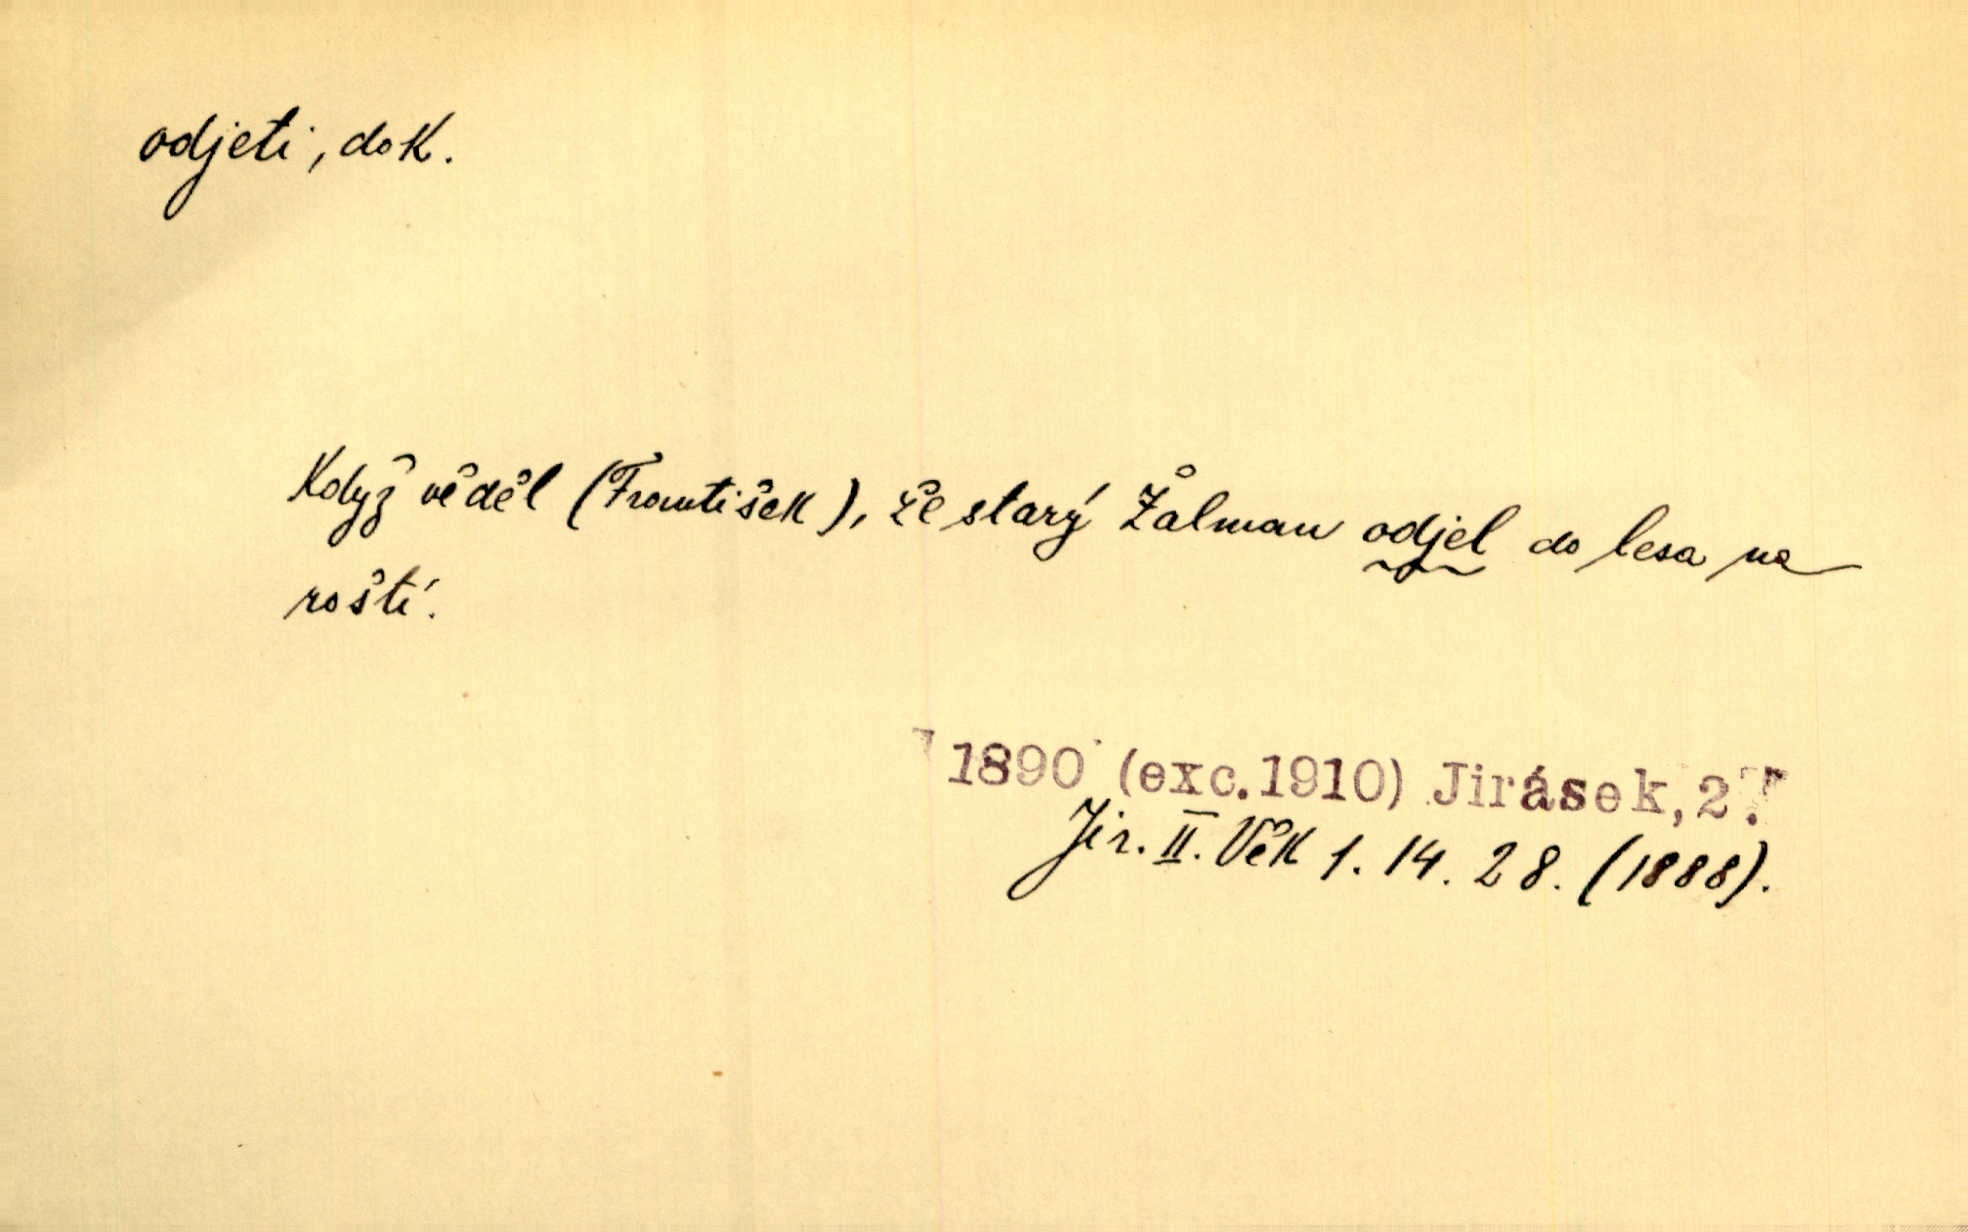 odjeti, dok.
Když věděl (František), že starý Žalman odjel do lesa na
roští.
1890 (exc.1910) Jirásek, 2.
Jir. II. Věk 1. 14. 28. (1888).